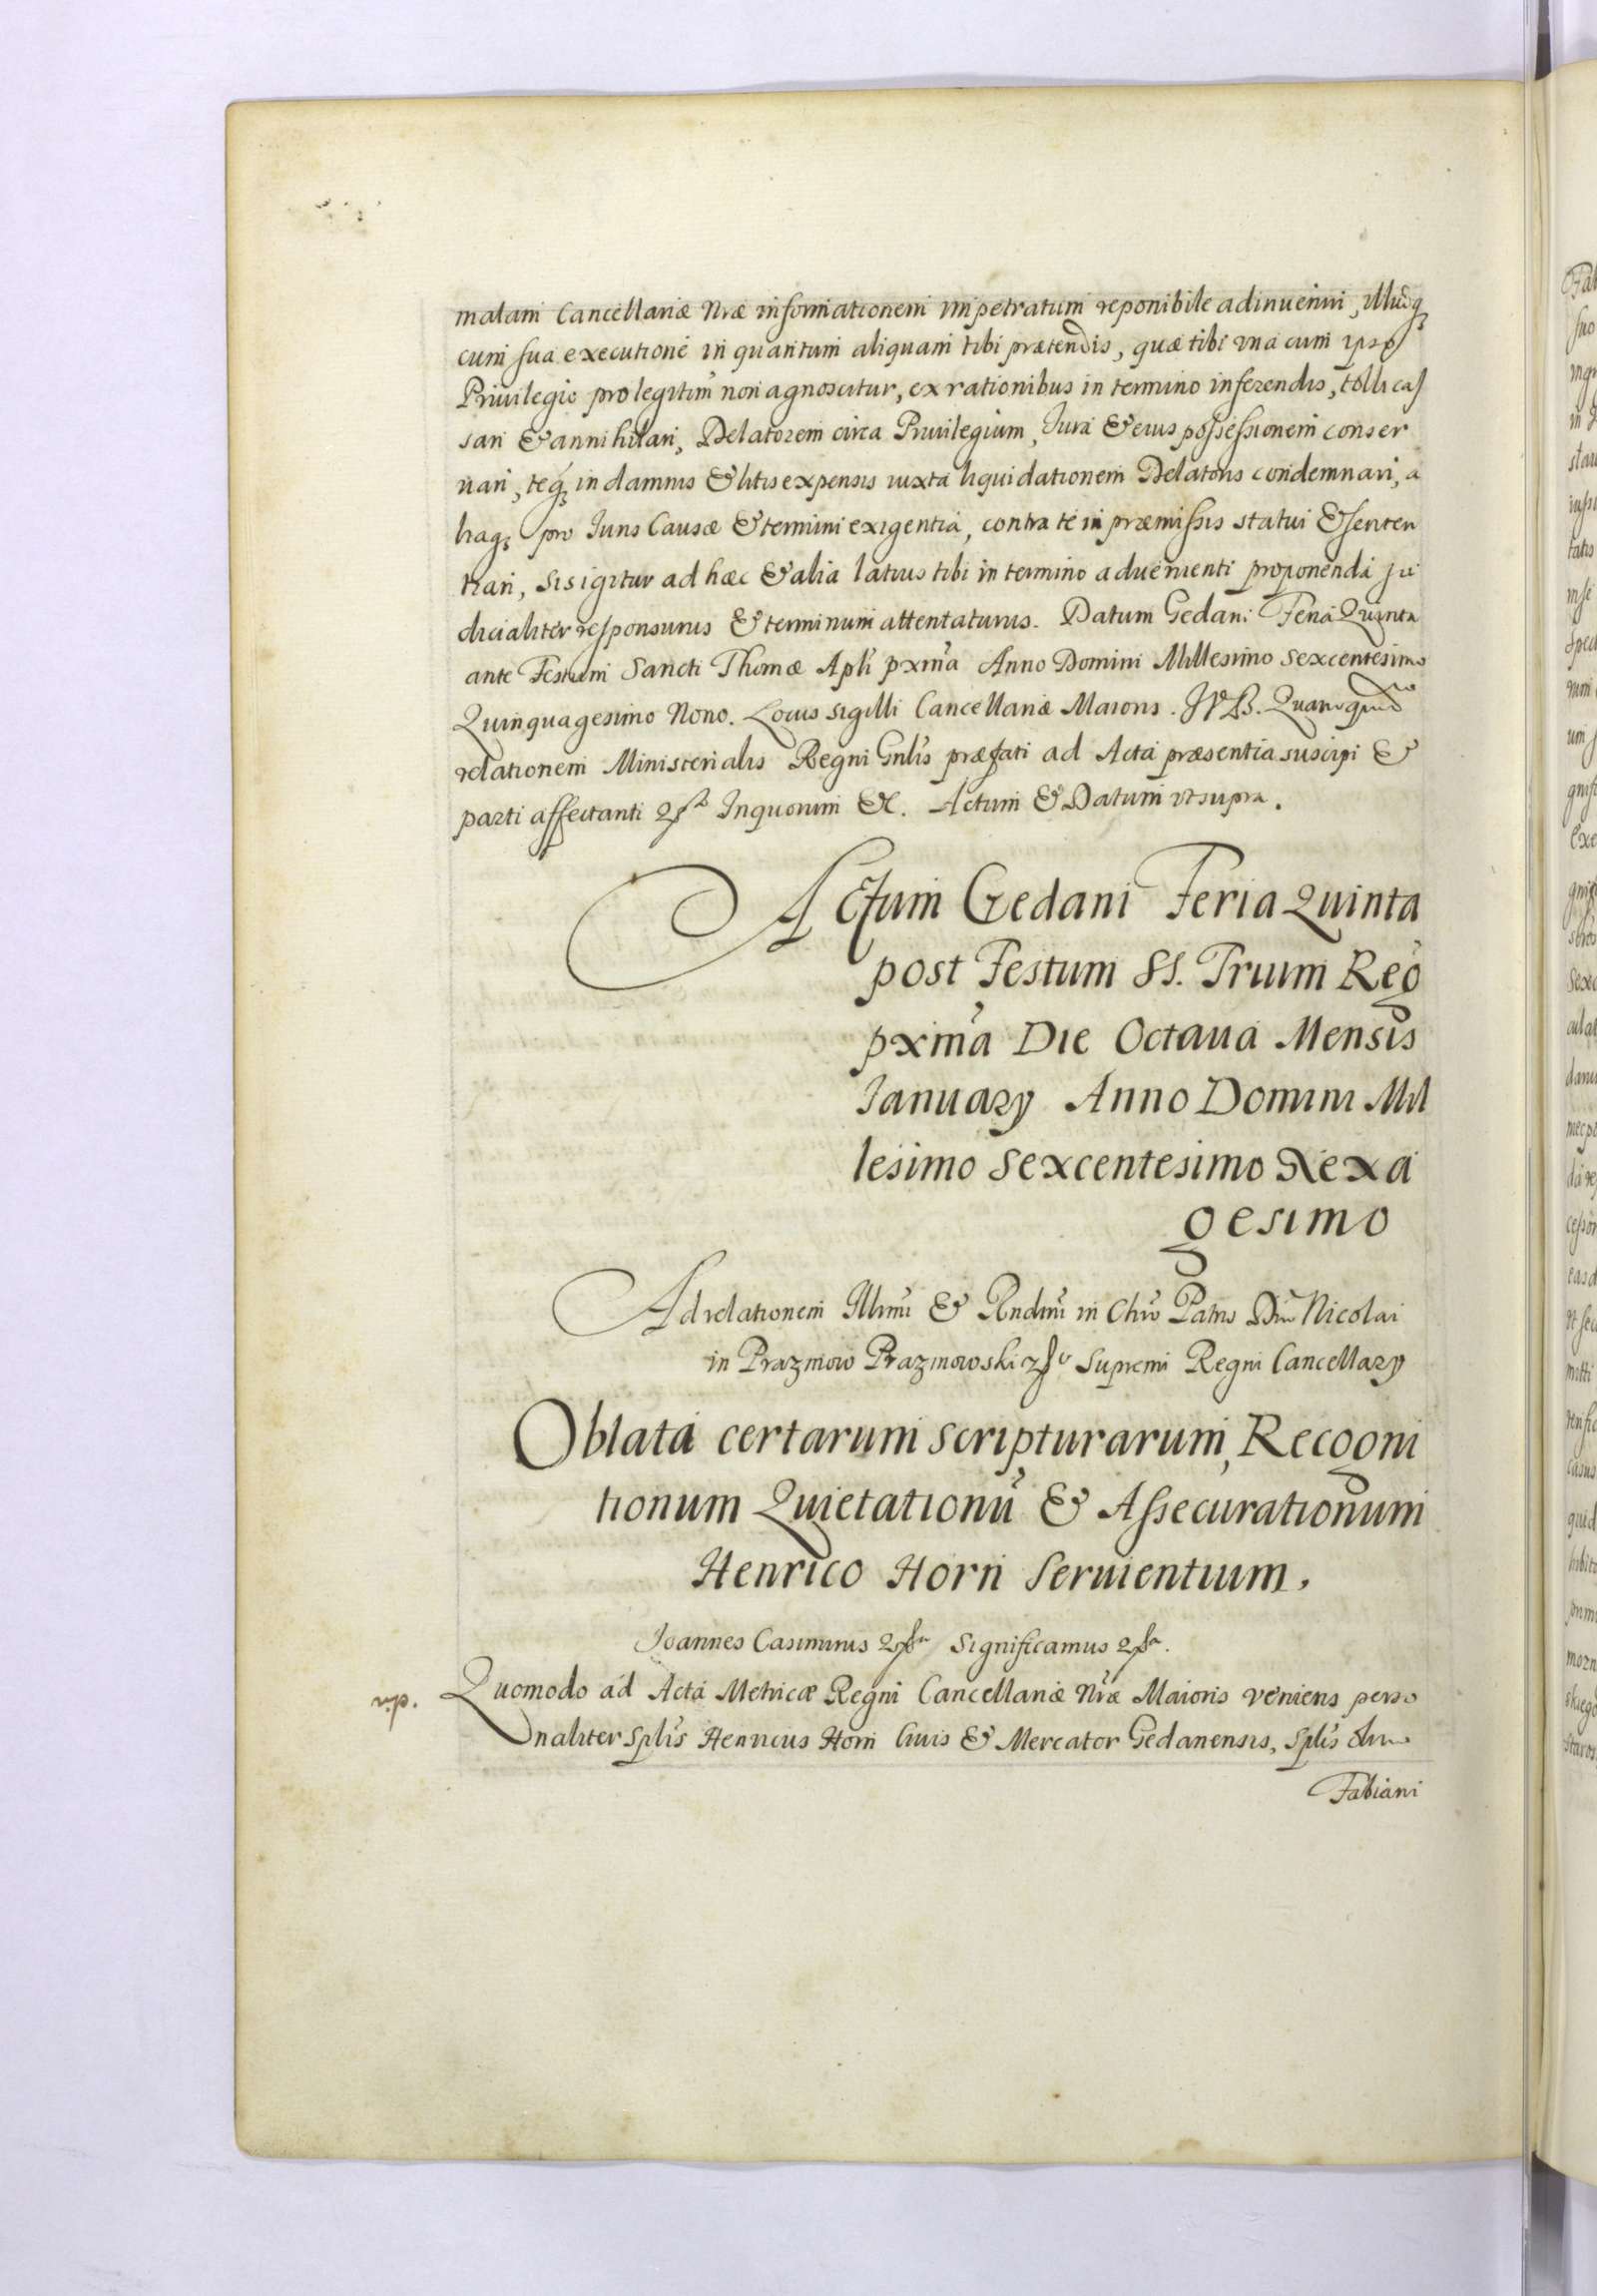 malam Cancellariæ Nræ informationem impetratum reponibile adinueniri, illudq₃
cum sua executione in quantum aliquam tibi prætendis, quæ tibi vna cum ipso
Priuilegio pro legitim̃ non agnoscitur, ex rationibus in termino inferendis, tolli cas
sari & annihilari, Delatorem circa Priuilegium, Iura & eius possessionem conser
uari, teq₃ in damnis & litis expensis iuxta liquidationem Delatoris condemnari, a
liaq₃ pro Iuris Causæ & termini exigentia, contra te in præmissis statui & senten
tiari, sis igitur ad hæc & alia latius tibi in termino aduenienti proponenda ju
dicialiter responsurus & terminum attentaturus. Datum Gedani Feria Quinta
ante Festum Sancti Thomæ Apli pxm̃a Anno Domini Millesimo Sexcentesimo
Quinquagesimo Nono. Locus sigilli Cancellariæ Maioris. Quam quid
relationem Ministerialis Regni Gnl̃is præfati ad Acta præsentia suscipi &
parti affectanti Inquorum &c. Actum & Datum vt supra.
Actum Gedani Feria Quinta
post Festum SS. Trium Reg̃
pxm̃a Die Octaua Mensis
January Anno Domini Mil
lesimo Sexcentesimo Sexa
gesimo
Ad relationem Illmi & Rndmi in Chro Patris Dni Nicolai
in Prazmow Prazmowski Supremi Regni Cancellary
Oblata certarum scripturarum, Recogni
tionum Quietationũ & Assecurationum
Henrico Horn seruientium,
Joannes Casimirus Significamus
Quomodo ad Acta Metricæ Regni Cancellariæ Nræ Maioris veniens perso
naliter Splis Henricus Horn Ciuis & Mercator Gedanensis, Splis olim
Fabiani